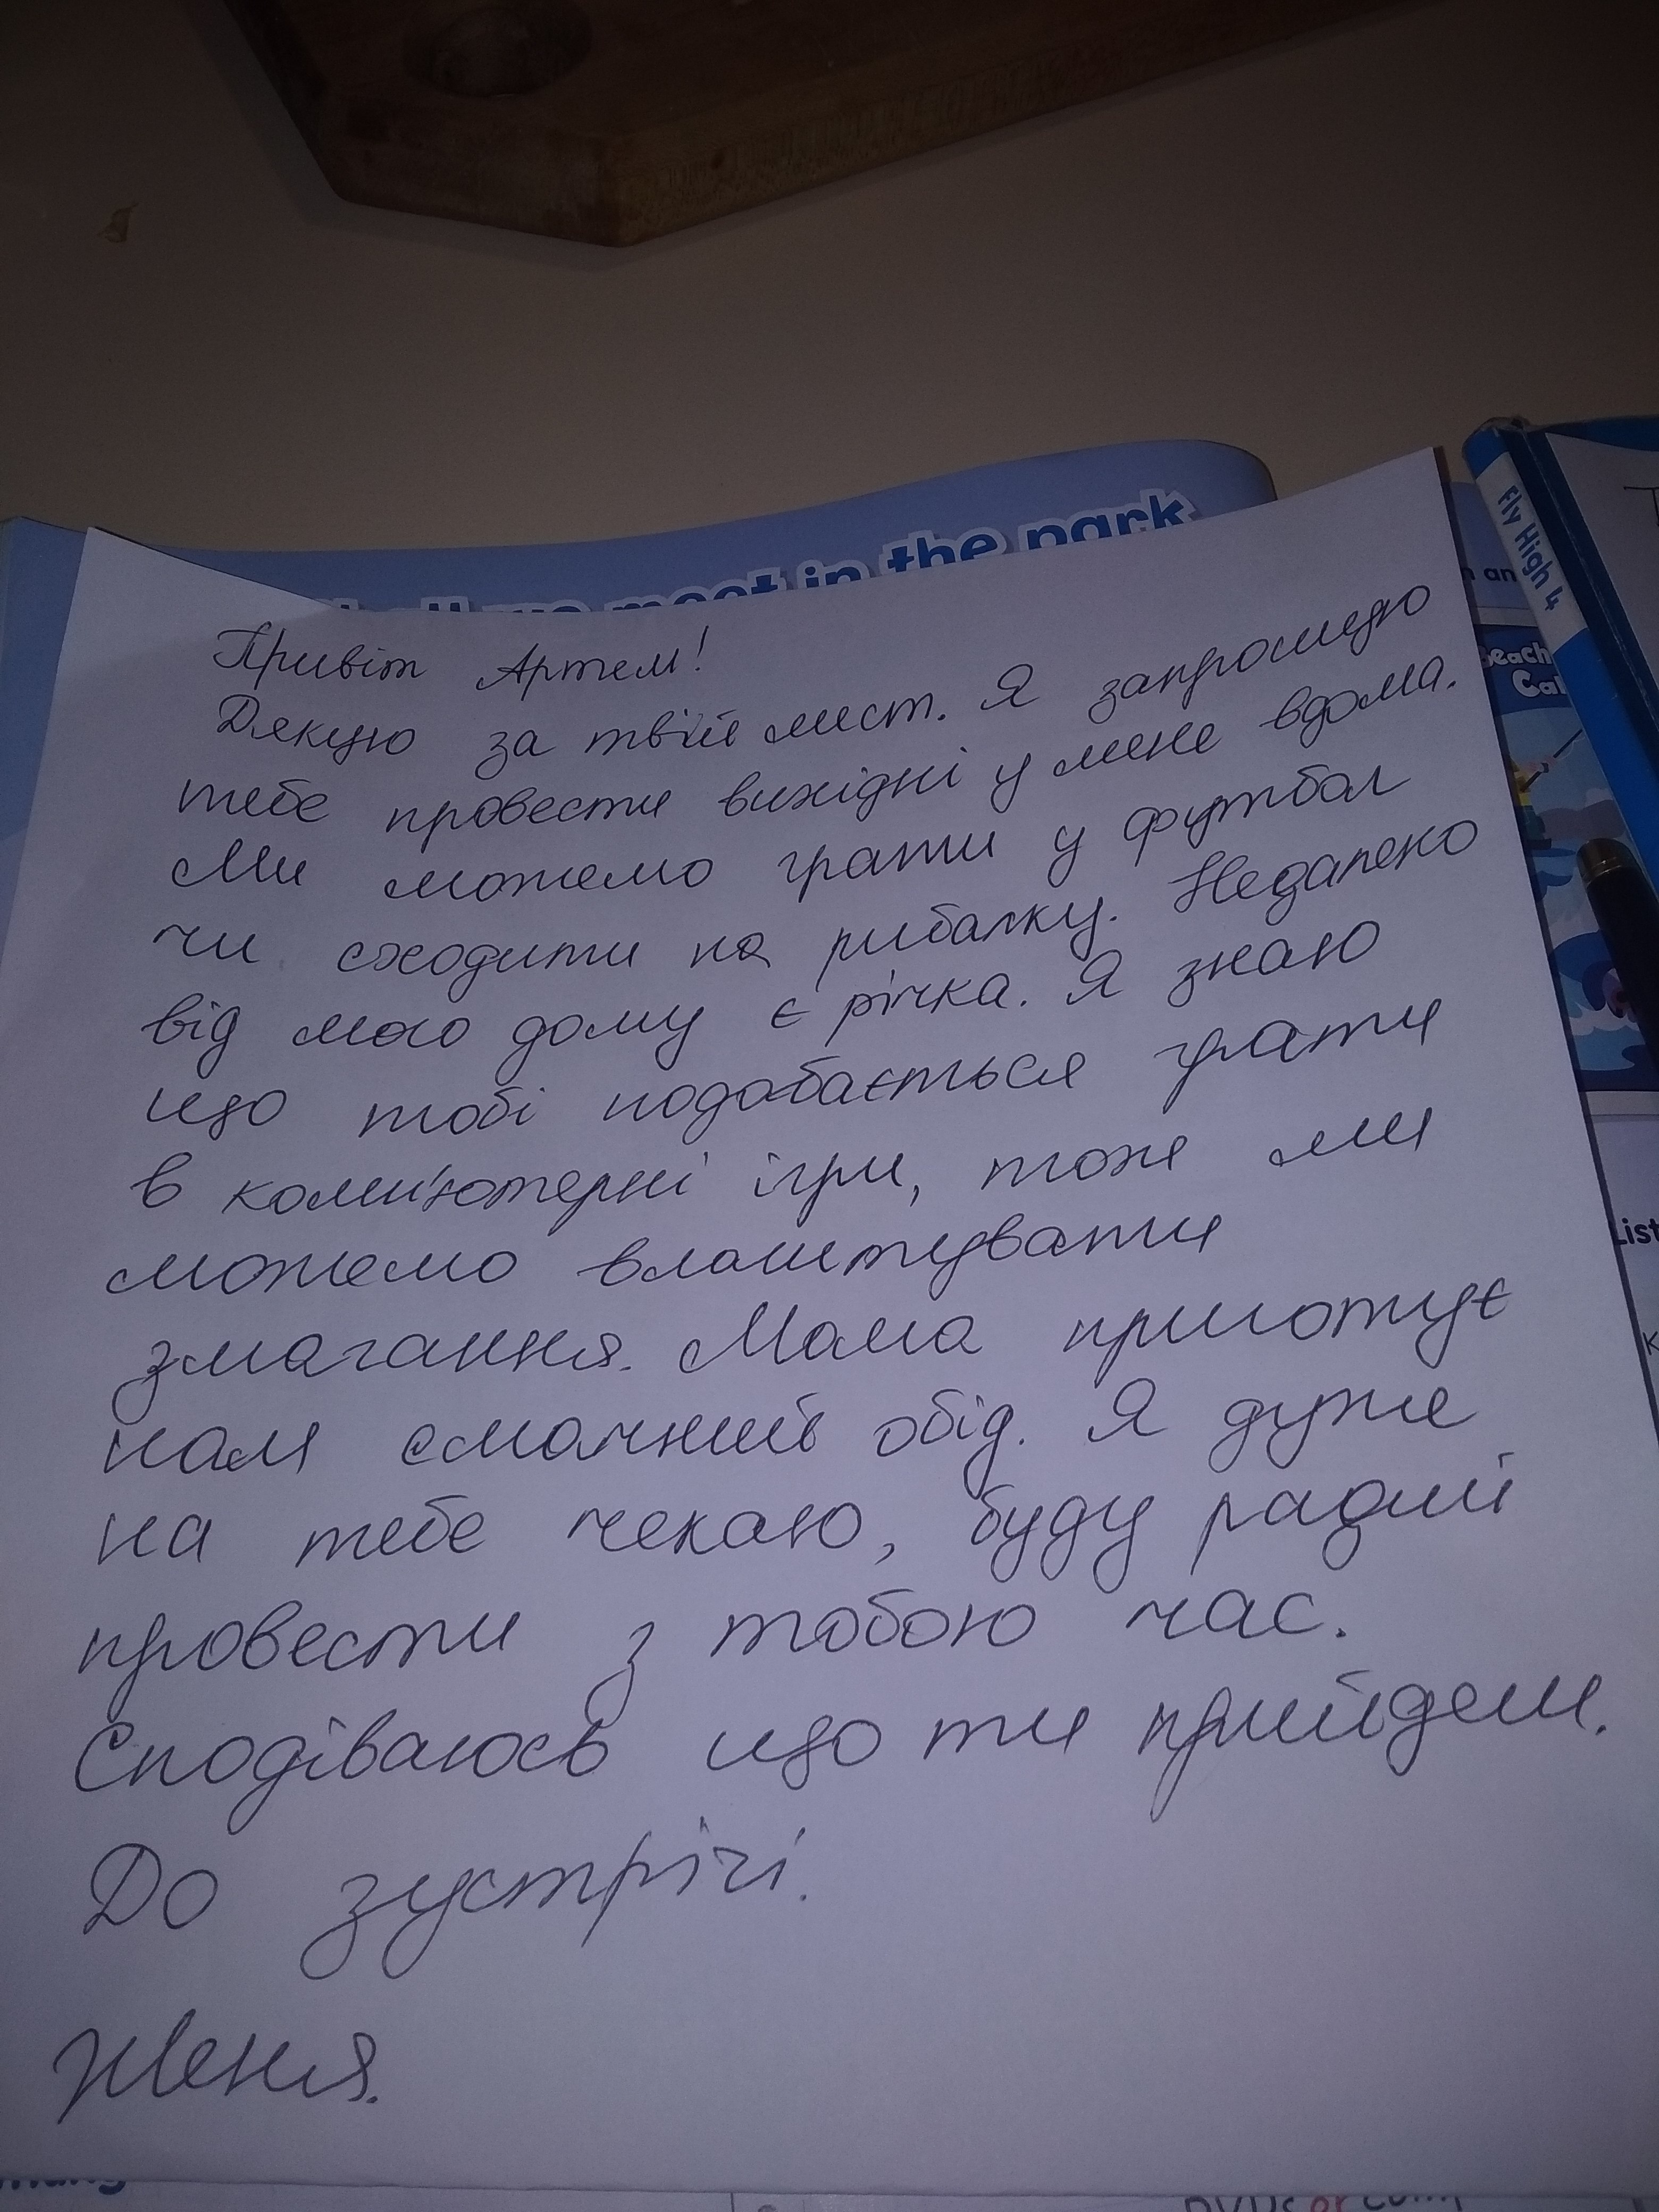 meet in the park
Fly High 4
Beach
Привіт Артем!
Дякую за твій лист. Я запрошую
тебе провести вихідні у мене вдома.
Ми можемо грати у футбол
чи сходити на рибалку. Недалеко
від мого дому є річка. Я знаю
що тобі подобається грати
в комп'ютерні ігри, тож ми
можемо влаштувати
змагання. Мама приготує
нам смачний обід. Я дуже
на тебе чекаю, буду радий
провести з тобою час.
Сподіваюсь що ти прийдеш.
До зустрічі.
Женя.
DVDs or